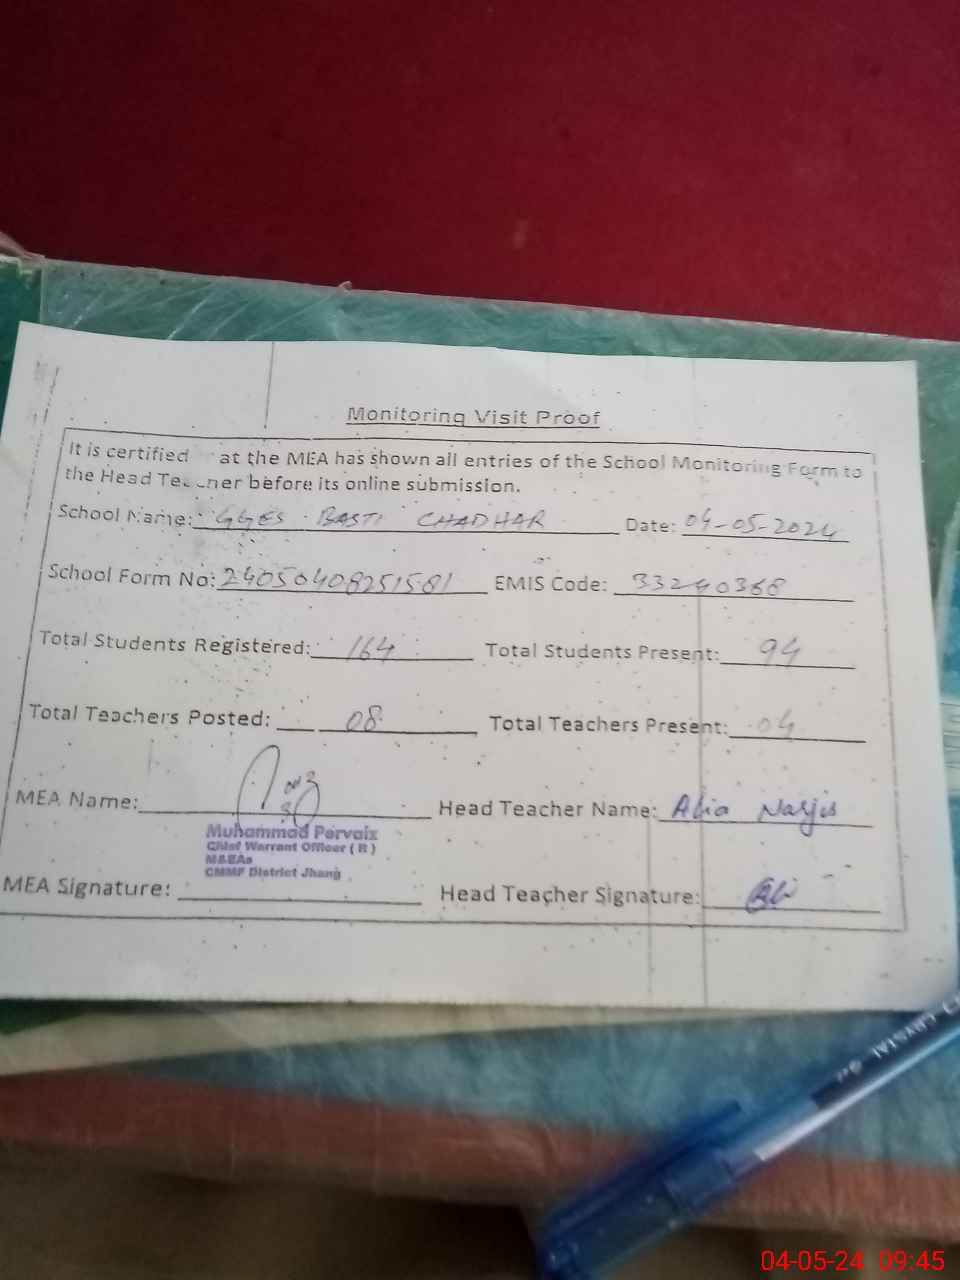 Monitoring Visit Proof
It is certified at the MEA has shown all entries of the School Monitoring Form to
the Head Teacher before its online submission.
School Name: GGES BASTI CHADHAR Date: 04-05-2024
School Form No: 24050408251581 EMIS Code: 33240368
Total Students Registered: 164 Total Students Present: 94
Total Teachers Posted: 08 Total Teachers Present: 04
MEA Name: Head Teacher Name: Alia Narjis
Muhammad Pervaiz
Chief Warrant Officer ( R )
M&EAs
CMMF District Jhang
MEA Signature: Head Teacher Signature:
CRYSTAL
04-05-24 09:45